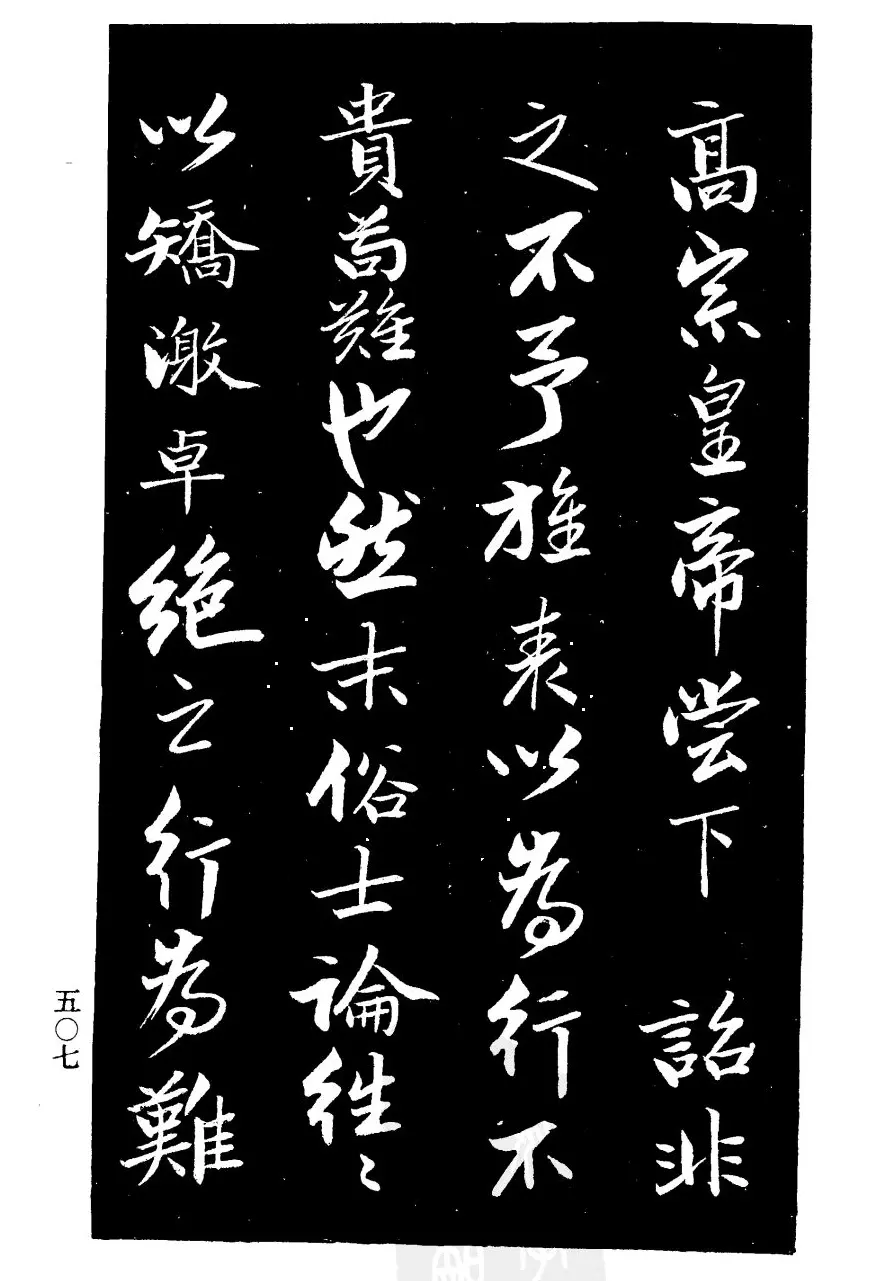 高宗皇帝嘗下 詔非
之不予旌表以為行不
貴苟難也然末俗士論往〻
以矯激卓絕之行為難
五〇七